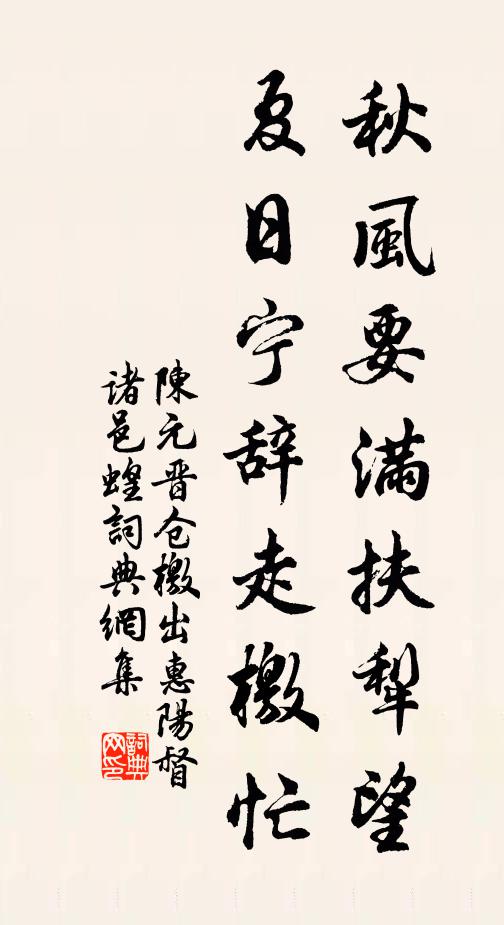 秋風要滿扶犁望
夏日宁辞走檄忙
陳元晋仓檄出惠陽督
诸邑蝗詞典網集
詞典网印